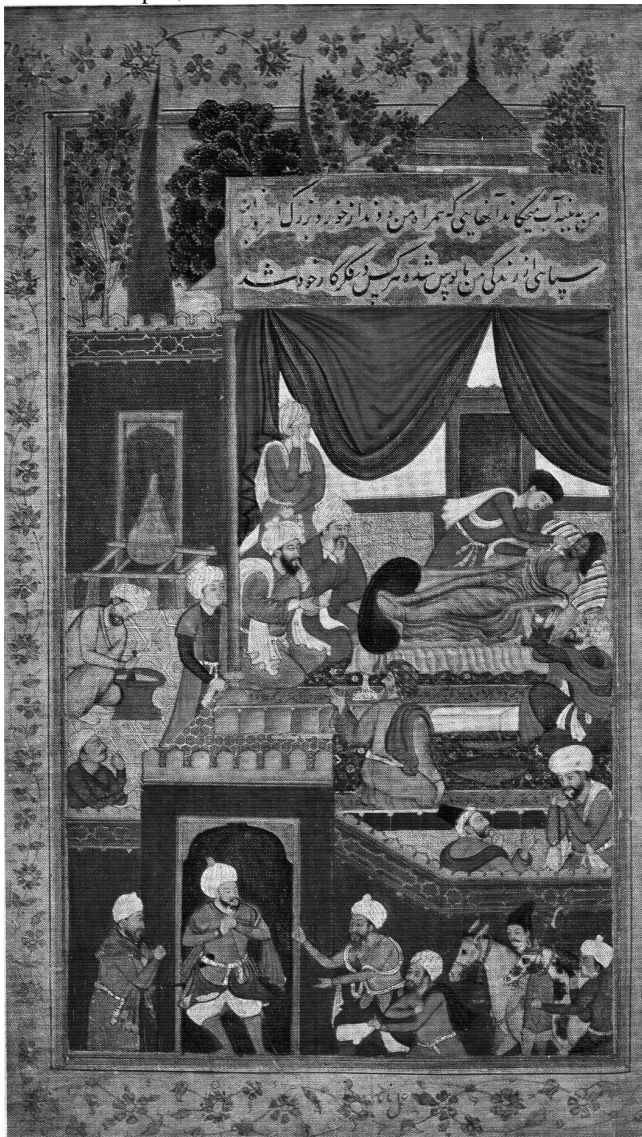 من به پنبه آب میچکاند آنهایی که همراه من بودند از خورد و بزرگ
سپاهی از زندگی من مایوس شده هر کس در فکر کار خود شد